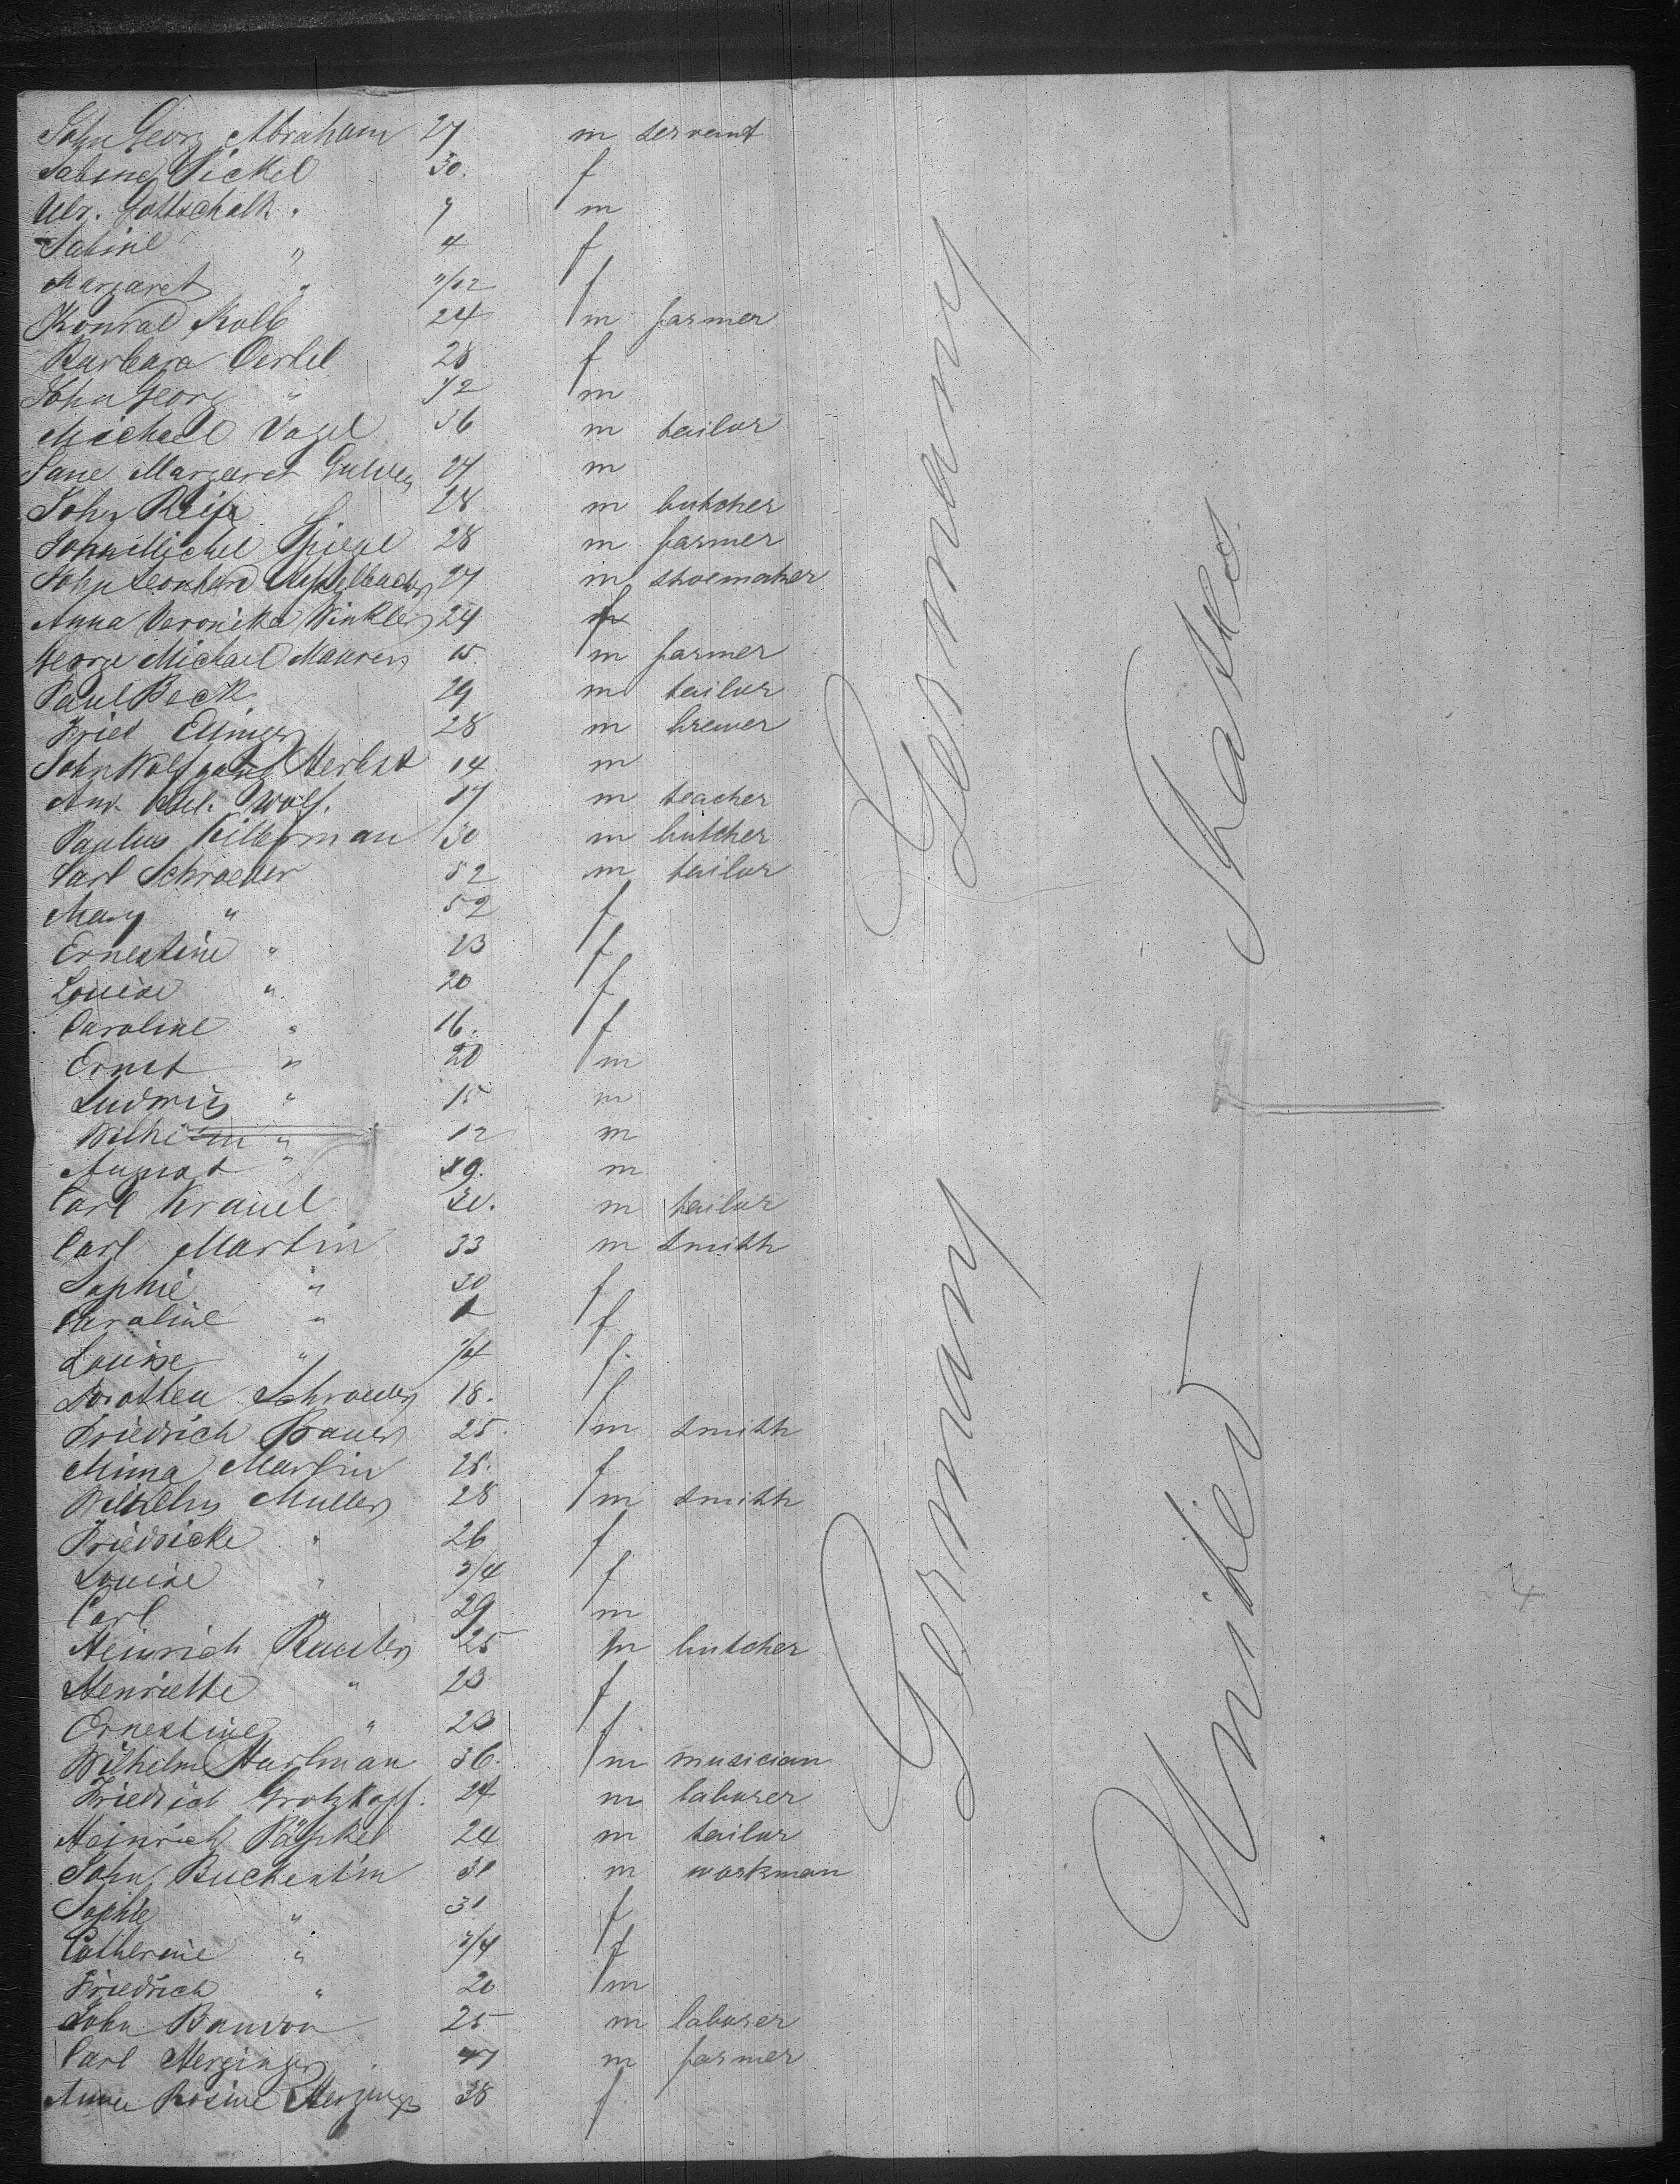 John Georg Abraham 27 m servant
Sabine Sickel 30. f
Gottschalk " 7 m
Sabine " 4 f
Margaret " 11/12 f
Konrad Kolb 24 m farmer
Barbara Oertel 28 f
John Georg " 1/2 m
Michael Vogel 36 m tailor
Margaret 27 m
John Reif 28 m butcher
John Michel Spiegel 28 m farmer
John Leonhard 27 m shoemaker
Anna Veronika Winkler 24 f
George Michael Maurer 15. m farmer
Paul Beck 29 m tailor
Fried 28 m brewer
John Wolfgang Herbst 14 m
Wolf. 17 m teacher
Paulus Killerman 30 m butcher
Carl Schroeder 52 m tailor
Mary " 52 f
Ernestine " 23 f
Louise " 20 f
Caroline " 16. f
Ernst " 20 m
Ludwig " 15 m
Wilhelm " 12 m
August " 19. m
Carl 30. m tailor
Carl Martin 33 m smith
Sophie " 30 f
Caroline " f
Louise " 1/4 f.
Dorothea 18. f
Friedrich Bauer 25. m smith
Mina Martin 28. f
Wilhelm Muller 28 m smith
Friedricke " 26 f
Louise " 3/4 f
Carl " 29 m
Heinrich 25 m butcher
Henriette " 23 f
Ernestine " 23 f
Wilhelm Hartman 36. m musician
Friedrich Grotzkopf. 24 m laborer
Heinrich 24 m tailor
John Buckentin 31 m workman
Sophie " 31 f
Catherine " 3/4 f
Friedrich " 20 m
John 25 m laborer
Carl Herzinger 47 m farmer
Anna Rosine Herzinger 38 f
Germany Germany
United States